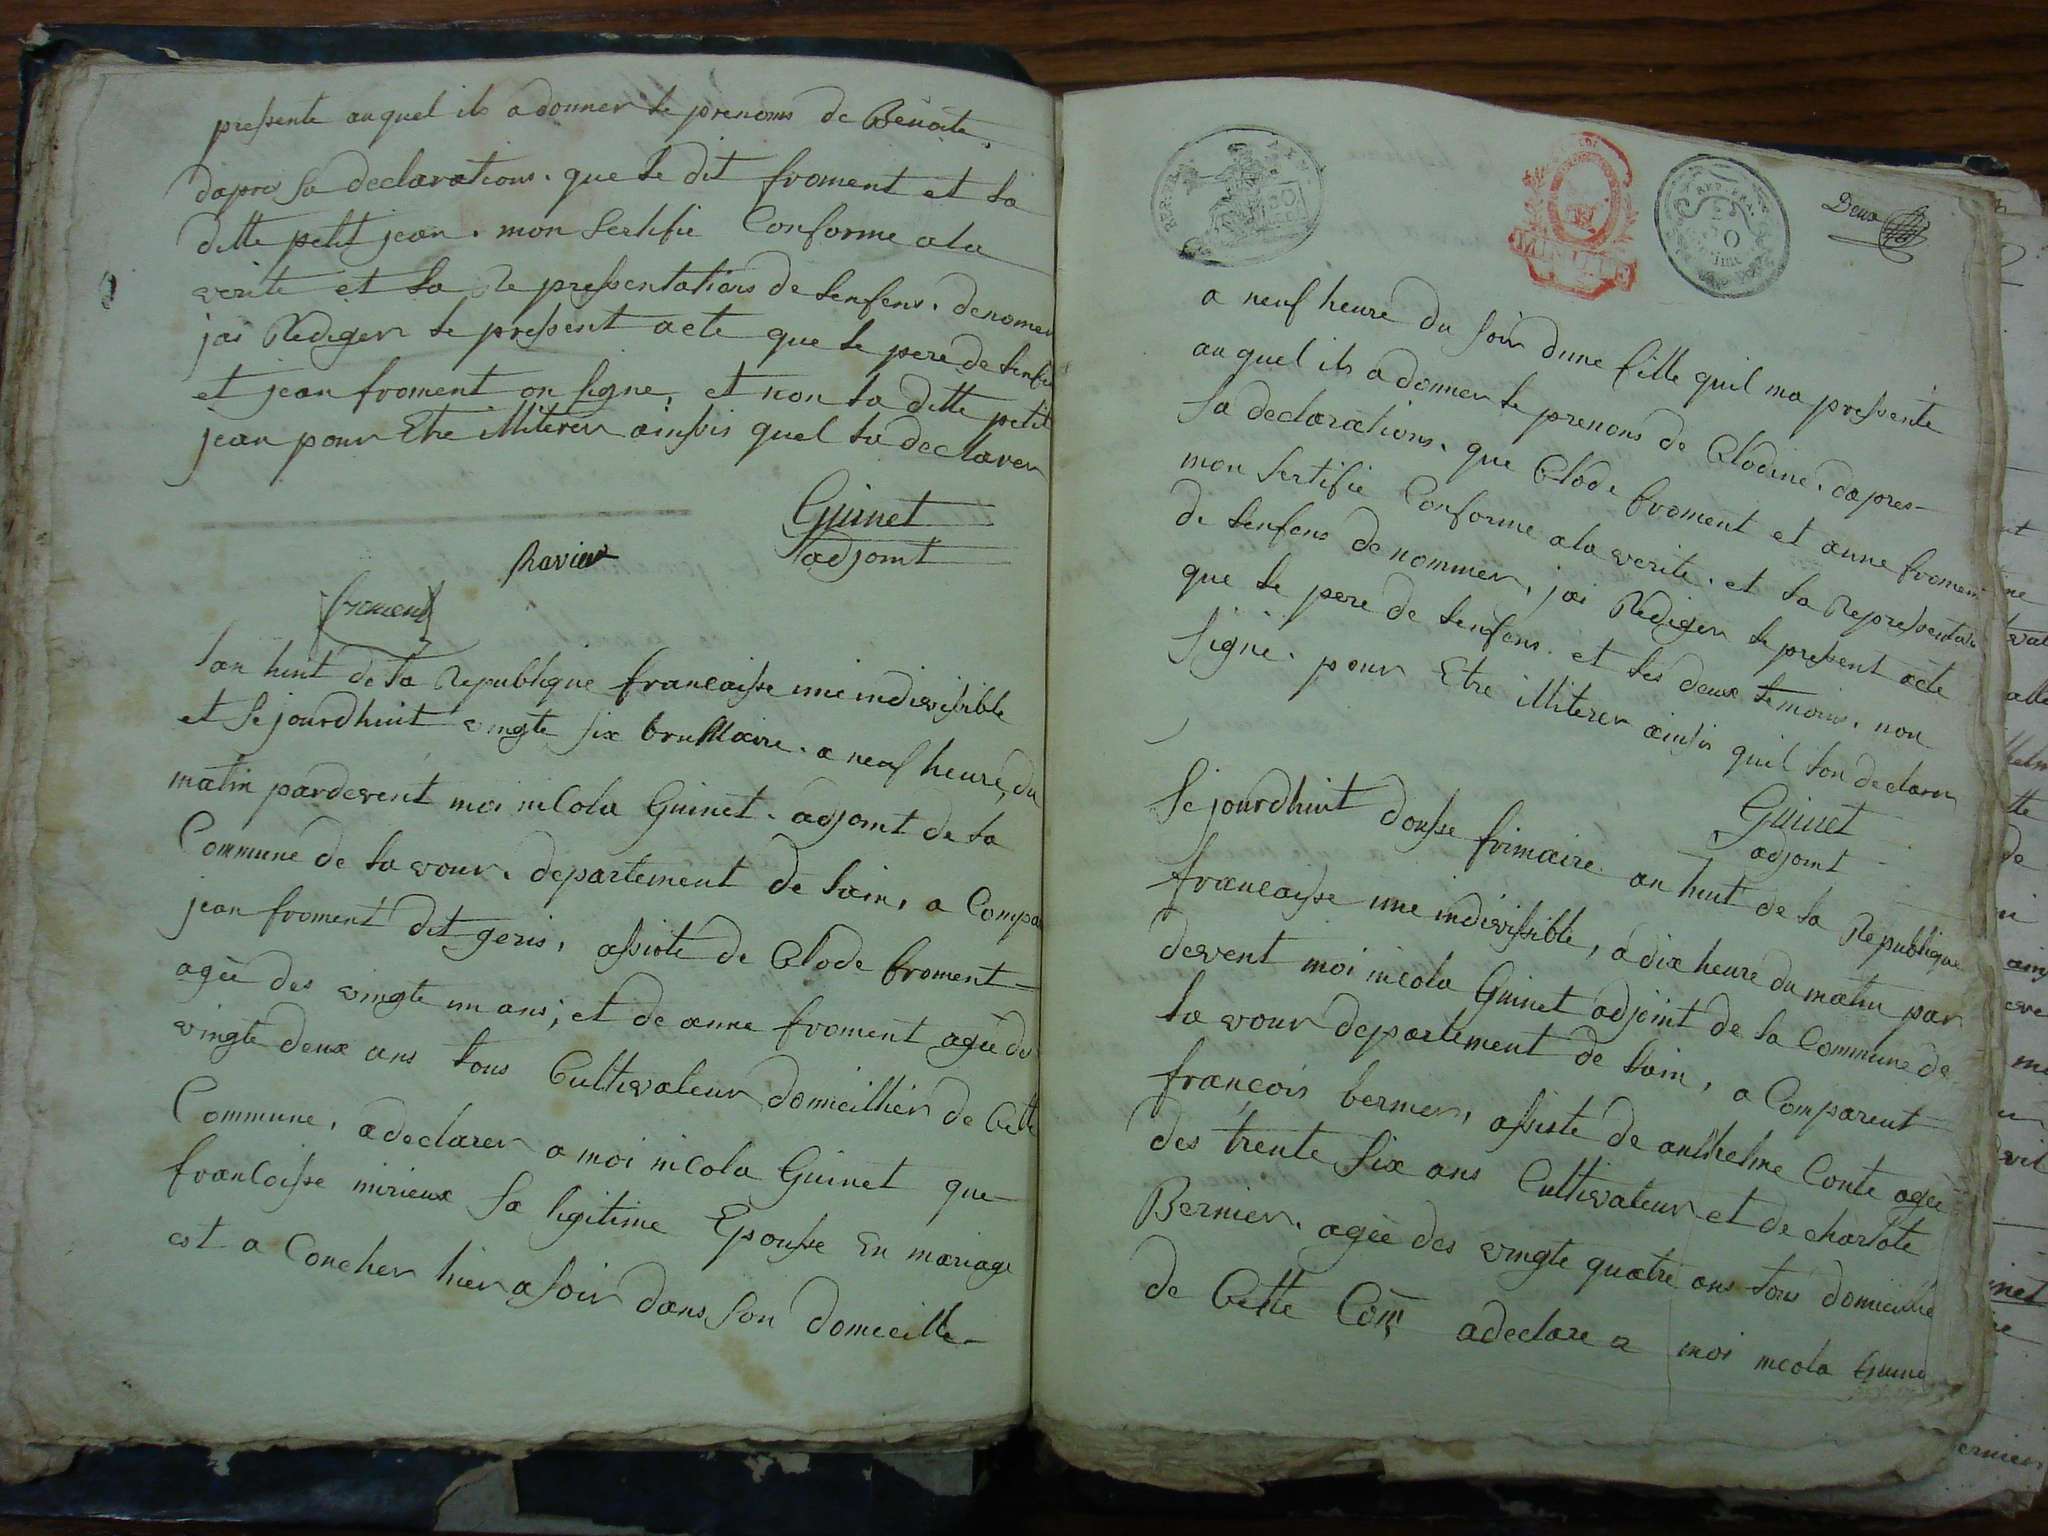 pressente auquel ils a donner le prenoms de Benoite
dapres sa declarations. que le dit froment et la
ditte petit jean. mon sertifie Conforme a la
verite et la Representations de lenfens. denomer
jai Rediger le present acte que le pere de lenfen
et jean froment on signe, et non la ditte petit
jean pour Etre illiterer ainssis quel la declarer
Guinet
adjoint
Ravier
froment
lan huit de la Republique francaisse une indivissible
et se jourdhuit vingte six brumaire. a neuf heure du
matin pardevent moi nicola Guinet. adjoint de la
Commune de la vour. departement de lain, a Compa
jean froment dit geris, assiste de Clode froment
agee des vingte un ans, et de anne froment agee de
vingte deux ans tous Cultivateur domicillier de Cette
Commune, a declarer a moi nicola Guinet que
francoisse mirieux sa ligitime Epousse En mariage
est a Coucher hier a soir dans son domicille
Deux
a neuf heure du soir dune fille quil ma pressente
auquel ils a donner le prenons de Clodine. dapres
sa declarations. que Clode froment et anne froment
mon sertifie Conforme a la verite. et la Representati
de lenfens de nommer, jai Rediger le present acte
que le pere de lenfens. et les deux temoins. non
signe. pour Etre illiterer ainsis quil lon declarer
Guinet
adjoint
Se jourdhuit dousse frimaire an huit de la Republique
francaisse une indivissible, a dix heure du matin par
devent moi nicola Guinet adjoint de la Commune de
la vour departement de lain, a Comparent
françois bernier, assiste de anthelme Conte agee
des trente six ans Cultivateur et de charlote
Bernier. agee des vingte quatre ans tous domicillie
de Cette Com a declare a moi nicola Guine